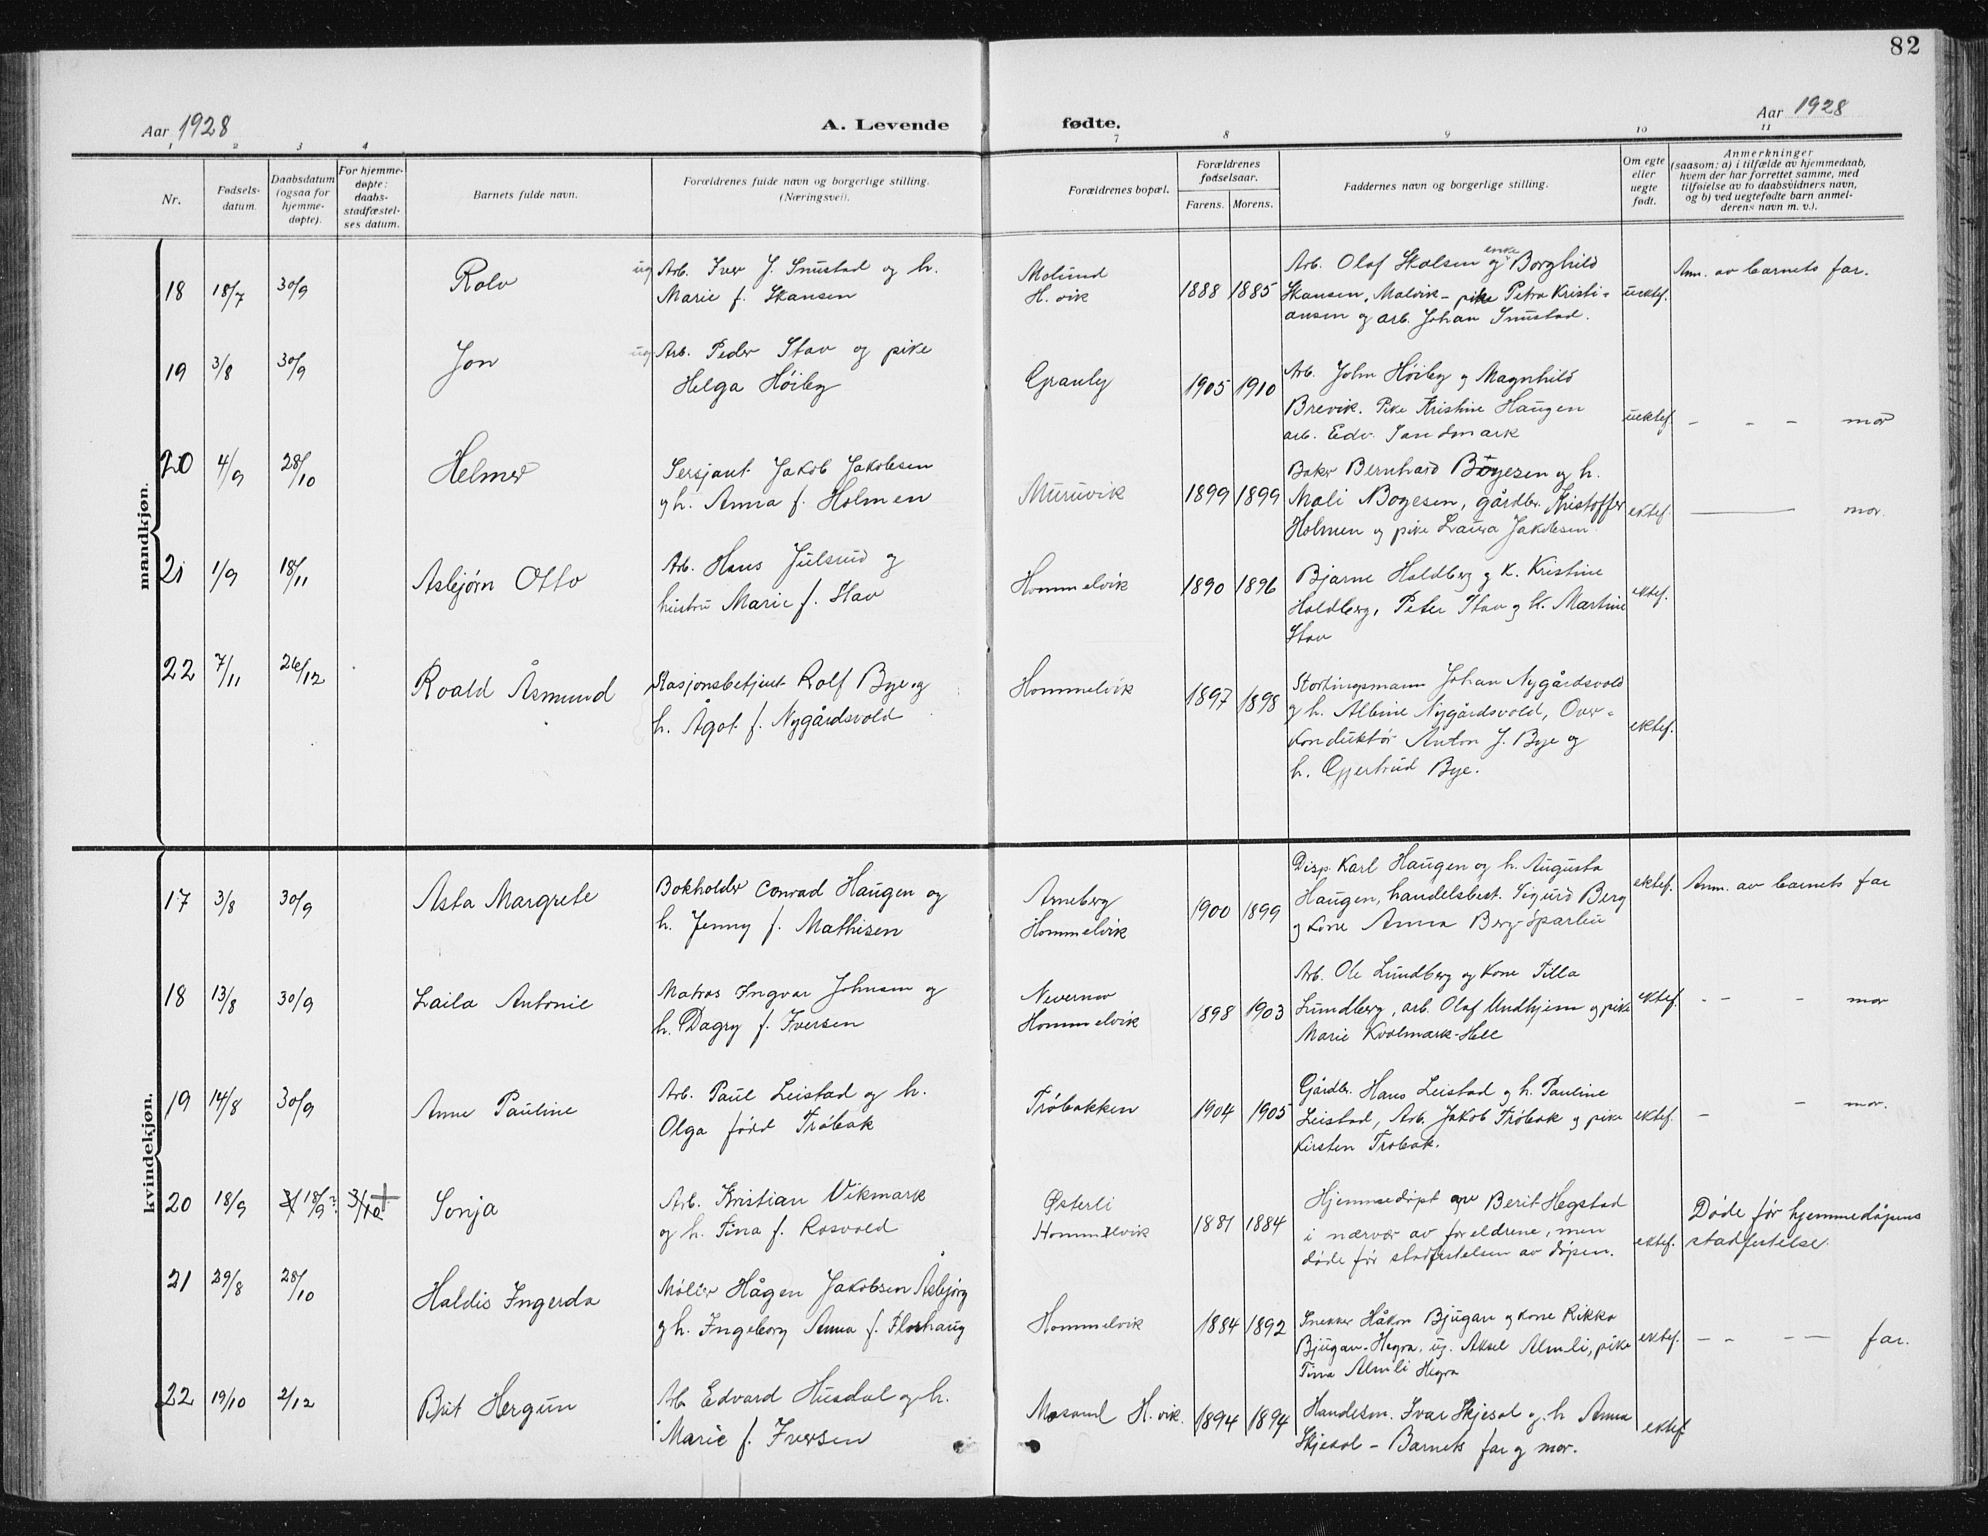 82
Aar 1928
A. Levende fødte.
Aar 1928
1 2 3 4 7 8 9 10 11
Nr.
Fødsels-
datum.
Daabsdatum
(ogsaa for
hjemme-
døpte).
For hjemme-
døpte:
daabs-
stadfæstel-
ses datum.
Barnets fulde navn.
Forældrenes fulde navn og borgerlige stilling.
(Næringsvei).
Forældrenes bopæl.
Forældrenes
fødselsaar.
Farens. Morens.
Faddernes navn og borgerlige stilling.
Om egte
eller
uegte
født.
Anmerkninger
(saasom: a) i tilfælde av hjemmedaab,
hvem der har forrettet samme, med
tilføielse av to daabsvidners navn,
og b) ved uegtefødte barn anmel-
derens navn m. v.).
mandkjøn.
18 18/7 30/9 Rolv
ug Arb. Iver J. Snustad og h.
Marie f. Skansen
H. vik
1888 1885
Arb. Olaf Skolsen og enke Borghild
Skansen, Malvik - pike Petra Kristi-
ansen og arb. Johan Snustad.
uektef.
Anm. av barnets far.
19 3/8 30/9 Jon
ug Arb. Peder Stav og pike
Helga Høiby
Granly
1905 1910
Arb. John Høiby og Magnhild
Brevik. Pike Kristine Haugen
arb. Edv. Sandmark
uektef.
- - - mor
20 4/9 28/10 Helmer
Sersjant Jakob Jakobsen
og h. Anna f. Holmen
Muruvik
1899 1899
Baker Bernhard Bøyesen og h.
Mali Bøyesen, gårdbr. Kristoffer
Holmen og pike Laura Jakobsen
ektef.
— mor.
21 1/9 18/11 Asbjørn Otto
Arb. Hans Julsrud og
hustru Marie f. Stav
Hommelvik
1890 1896
Bjarne Holdberg og k. Kristine
Holdberg, Peter Stav og k. Martine
Stav
ektef.
22 7/11 26/12 Roald Åsmund
Stasjonsbetjent Rolf Bye og
h. Ågot f. Nygårdsvold
Hommelvik
1897 1898
Stortingsmann Johan Nygårdsvold
og h. Albine Nygårdsvold, Over-
konduktør Anton J. Bye og
h. Gjertrud Bye.
ektef.
kvindekjøn.
17 3/8 30/9 Asta Margrete
Bokholder Conrad Haugen og
h. Jenny f. Mathisen
Arneberg
Hommelvik
1900 1899
Disp. Karl Haugen og h. Augusta
Haugen, handelsbest. Sigurd Berg
og kone Anna Berg-Sparbu
ektef.
Anm. av barnets far
18 13/8 30/9 Laila Antonie
Matros Ingvar Johnsen og
h. Dagny f. Iversen
Hommelvik
1898 1903
Arb. Ole Lundberg og kone Tilla
Lundberg, arb. Olaf Undhjem og pike
Marie Kvolmark-Hell
ektef.
- - - mor
19 14/8 30/9 Anne Pauline
Arb. Paul Leistad og h.
Olga född Trøbak
Trøbakken
1904 1905
Gjårdbr. Hans Leistad og h. Pauline
Leistad, Arb. Jakob Trøbak og pike
Kirsten Trøbak.
ektef.
- - mor.
20 18/9 18/9? 3/10 + Sonja
Arb. Kristian Vikmark
og h. Tina f. Rosvold
Østerli
Hommelvik
1881 1884
Hjemmedøpt av Berit Hegstad
i nærvær av foreldrene, men
døde før stadfestelsen av døpen.
ektef.
Døde før hjemmedåpens
stadfestelse.
21 29/8 28/10 Haldis Ingerda
Møller Hågen Jakobsen Åsbjørg
og h. Ingeborg Anna f. Florhaug
Hommelvik
1884 1892
Snekker Håkon Bjugan og kone Rikka
Bjugan-Hegra, ug. Aksel Almli, pike
Tina Almli Hegra
ektef.
- - - - far.
22 19/10 2/12 Brit Hergun
Arb. Edvard Husdal og h.
Marie f. Iversen
H. vik.
1894 1894
Handelsm. Ivar Skjesol og h Anna
Skjesol - Barnets far og mor.
ektef